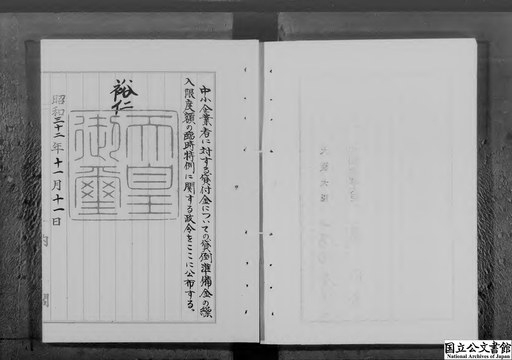 中小企業者に対する貸付金についての貸倒準備金の繰
入限度額の臨時特例に関する政令をここに公布する。
裕仁
天皇
御璽
昭和三十二年十一月十一日
国立公文書館
National Archives of Japan